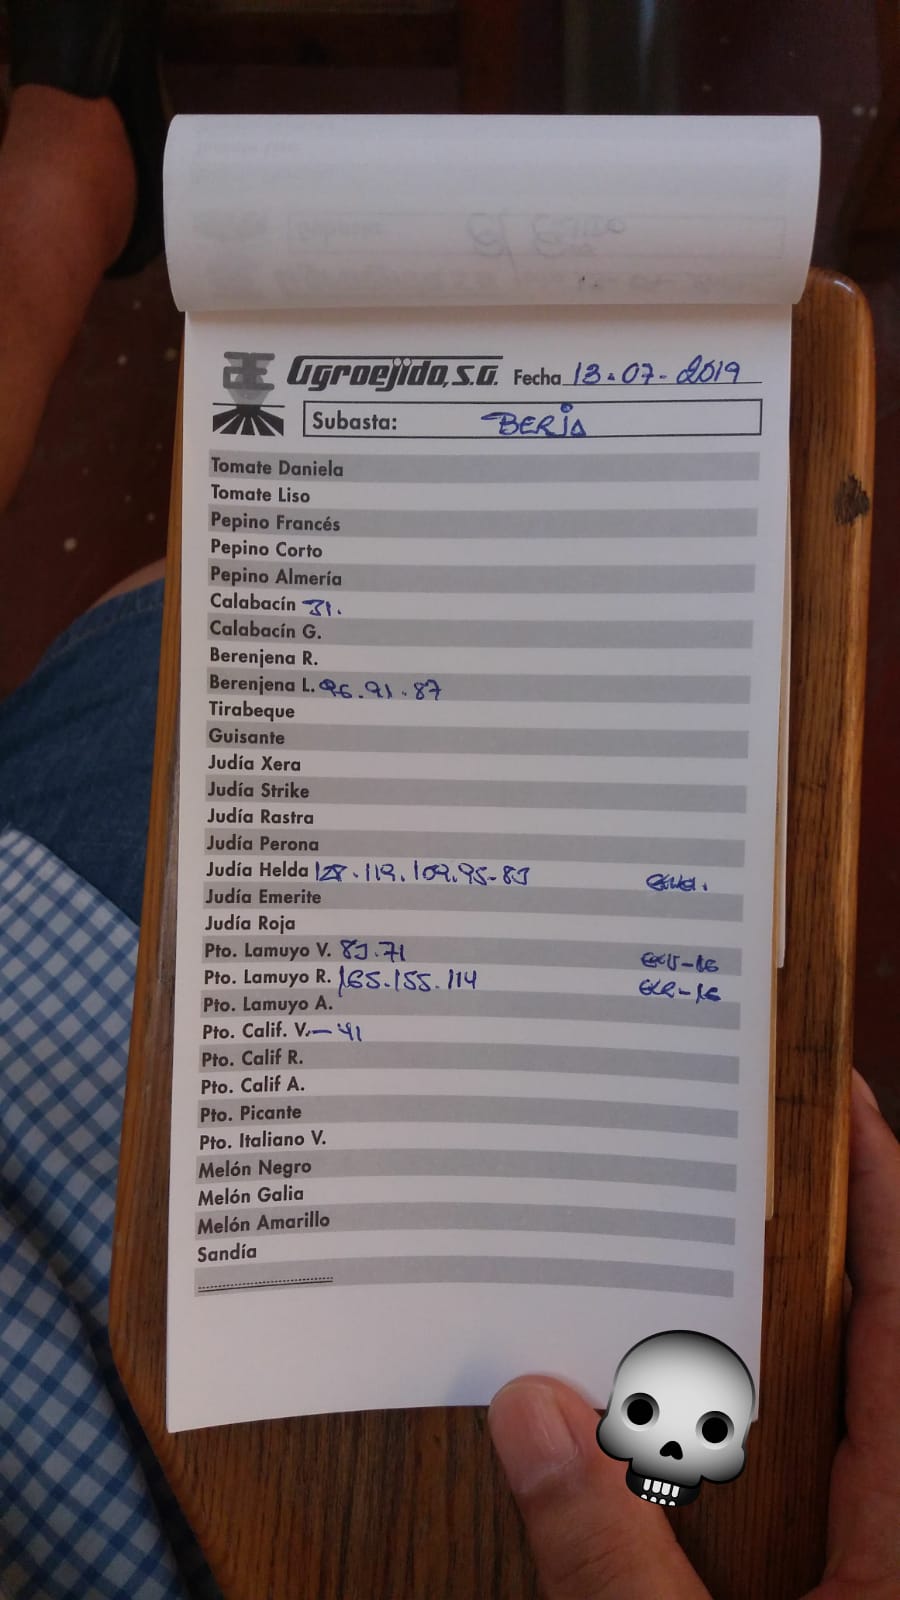 Agroejido, S.A. Fecha 13-07-2019
Subasta: BERJA
Tomate Daniela
Tomate Liso
Pepino Francés
Pepino Corto
Pepino Almería
Calabacín 31.
Calabacín G.
Berenjena R.
Berenjena L. 96.91.87
Tirabeque
Guisante
Judía Xera
Judía Strike
Judía Rastra
Judía Perona
Judía Helda 119.109.95-83
Judía Emerite
Judía Roja
Pto. Lamuyo V. 83.71
Pto. Lamuyo R. 165.155.114
Pto. Lamuyo A.
Pto. Calif. V.-41
Pto. Calif R.
Pto. Calif A.
Pto. Picante
Pto. Italiano V.
Melón Negro
Melón Galia
Melón Amarillo
Sandía